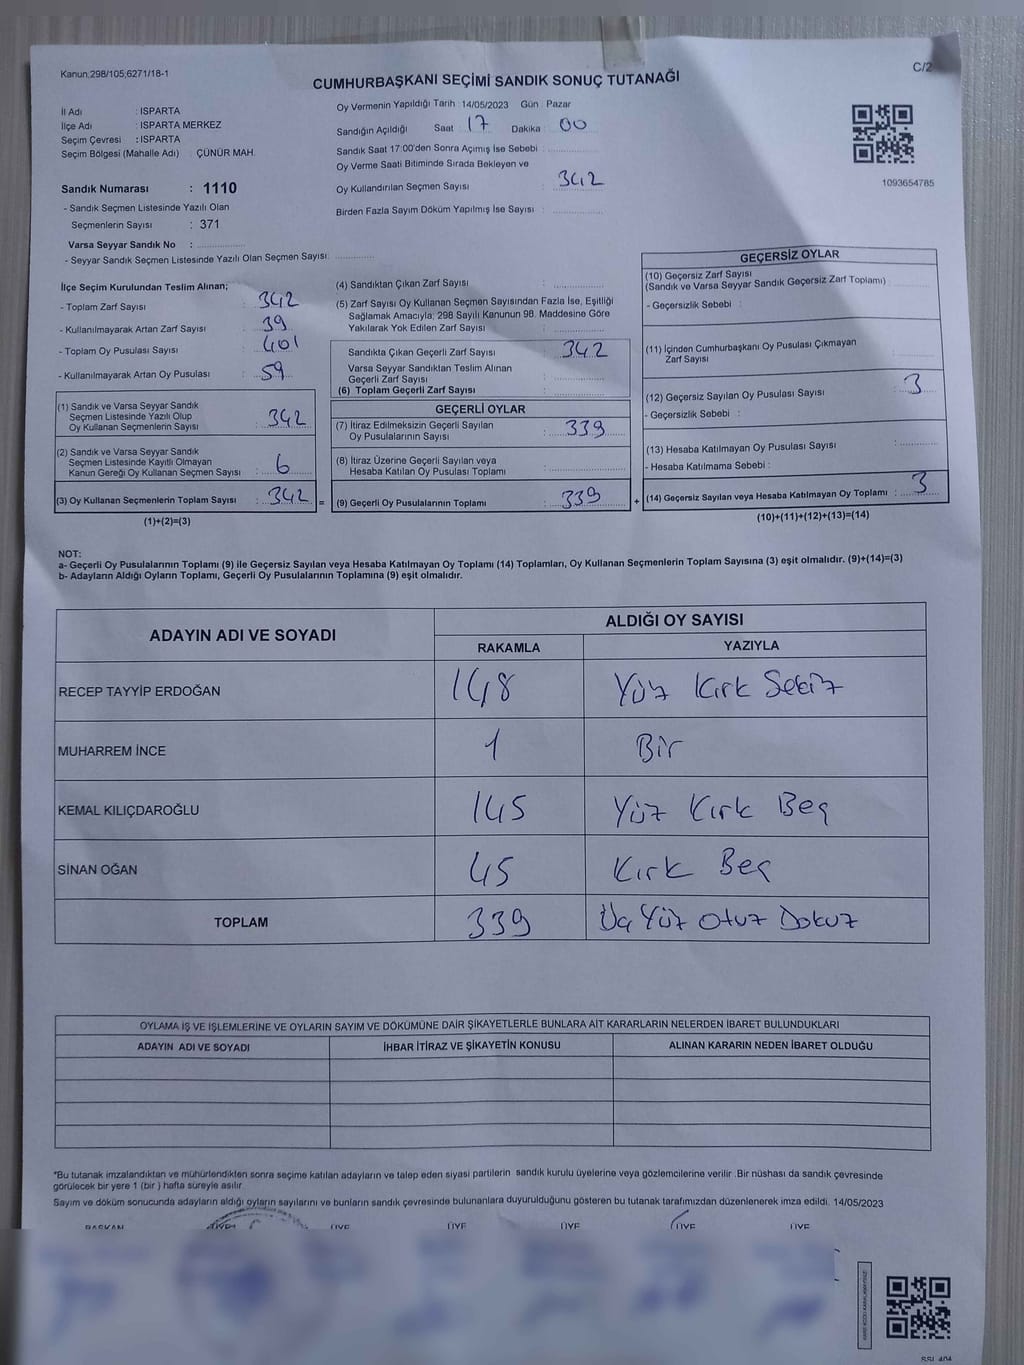 Kanun;298/105;6271/18-1
C/2
CUMHURBAŞKANI SEÇİMİ SANDIK SONUÇ TUTANAĞI
İl Adı : ISPARTA
İlçe Adı : ISPARTA MERKEZ
Seçim Çevresi : ISPARTA
Seçim Bölgesi (Mahalle Adı) : ÇÜNÜR MAH.
Sandık Numarası : 1110
- Sandık Seçmen Listesinde Yazılı Olan
Seçmenlerin Sayısı : 371
Varsa Seyyar Sandık No :
- Seyyar Sandık Seçmen Listesinde Yazılı Olan Seçmen Sayısı:
Oy Vermenin Yapıldığı Tarih : 14/05/2023 Gün : Pazar
Sandığın Açıldığı Saat : 17 Dakika : 00
Sandık Saat 17:00'den Sonra Açımış İse Sebebi :
Oy Verme Saati Bitiminde Sırada Bekleyen ve
Oy Kullandırılan Seçmen Sayısı : 342
Birden Fazla Sayım Döküm Yapılmış İse Sayısı :
1093654785
İlçe Seçim Kurulundan Teslim Alınan;
- Toplam Zarf Sayısı : 342
- Kullanılmayarak Artan Zarf Sayısı : 39
- Toplam Oy Pusulası Sayısı : 401
- Kullanılmayarak Artan Oy Pusulası : 59
(1) Sandık ve Varsa Seyyar Sandık
Seçmen Listesinde Yazılı Olup
Oy Kullanan Seçmenlerin Sayısı : 342
(2) Sandık ve Varsa Seyyar Sandık
Seçmen Listesinde Kayıtlı Olmayan
Kanun Gereği Oy Kullanan Seçmen Sayısı : 6
(3) Oy Kullanan Seçmenlerin Toplam Sayısı : 342 =
(1)+(2)=(3)
(4) Sandıktan Çıkan Zarf Sayısı :
(5) Zarf Sayısı Oy Kullanan Seçmen Sayısından Fazla İse, Eşitliği
Sağlamak Amacıyla; 298 Sayılı Kanunun 98. Maddesine Göre
Yakılarak Yok Edilen Zarf Sayısı :
Sandıkta Çıkan Geçerli Zarf Sayısı : 342
Varsa Seyyar Sandıktan Teslim Alınan
Geçerli Zarf Sayısı :
(6) Toplam Geçerli Zarf Sayısı :
GEÇERLİ OYLAR
(7) İtiraz Edilmeksizin Geçerli Sayılan
Oy Pusulalarının Sayısı : 339
(8) İtiraz Üzerine Geçerli Sayılan veya
Hesaba Katılan Oy Pusulası Toplamı :
(9) Geçerli Oy Pusulalarının Toplamı : 339 +
GEÇERSİZ OYLAR
(10) Geçersiz Zarf Sayısı
(Sandık ve Varsa Seyyar Sandık Geçersiz Zarf Toplamı)
- Geçersizlik Sebebi :
(11) İçinden Cumhurbaşkanı Oy Pusulası Çıkmayan
Zarf Sayısı
(12) Geçersiz Sayılan Oy Pusulası Sayısı : 3
- Geçersizlik Sebebi :
(13) Hesaba Katılmayan Oy Pusulası Sayısı :
- Hesaba Katılmama Sebebi :
(14) Geçersiz Sayılan veya Hesaba Katılmayan Oy Toplamı : 3
(10)+(11)+(12)+(13)=(14)
NOT:
a- Geçerli Oy Pusulalarının Toplamı (9) ile Geçersiz Sayılan veya Hesaba Katılmayan Oy Toplamı (14) Toplamları, Oy Kullanan Seçmenlerin Toplam Sayısına (3) eşit olmalıdır. (9)+(14)=(3)
b- Adayların Aldığı Oyların Toplamı, Geçerli Oy Pusulalarının Toplamına (9) eşit olmalıdır.
ADAYIN ADI VE SOYADI ALDIĞI OY SAYISI
RAKAMLA YAZIYLA
RECEP TAYYİP ERDOĞAN 148 Yüz Kırk Sekiz
MUHARREM İNCE 1 Bir
KEMAL KILIÇDAROĞLU 145 Yüz Kırk Beş
SİNAN OĞAN 45 Kırk Beş
TOPLAM 339 Üç Yüz Otuz Dokuz
OYLAMA İŞ VE İŞLEMLERİNE VE OYLARIN SAYIM VE DÖKÜMÜNE DAİR ŞİKAYETLERLE BUNLARA AİT KARARLARIN NELERDEN İBARET BULUNDUKLARI
ADAYIN ADI VE SOYADI İHBAR İTİRAZ VE ŞİKAYETİN KONUSU ALINAN KARARIN NEDEN İBARET OLDUĞU
*Bu tutanak imzalandıktan ve mühürlendikten sonra seçime katılan adayların ve talep eden siyasi partilerin sandık kurulu üyelerine veya gözlemcilerine verilir .Bir nüshası da sandık çevresinde
görülecek bir yere 1 (bir ) hafta süreyle asılır.
Sayım ve döküm sonucunda adayların aldığı oyların sayılarını ve bunların sandık çevresinde bulunanlara duyurulduğunu gösteren bu tutanak tarafımızdan düzenlenerek imza edildi. 14/05/2023
BAŞKAN ÜYE ÜYE ÜYE ÜYE ÜYE ÜYE